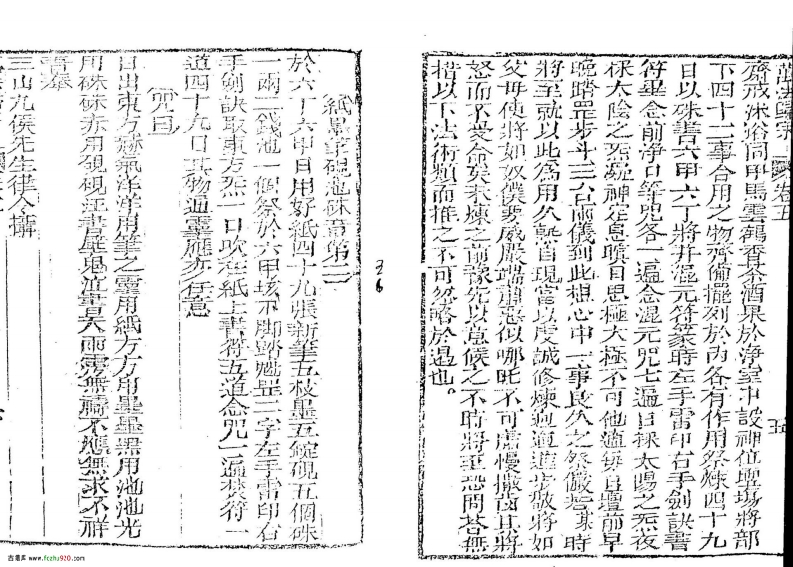 萬法歸宗 卷五
齋戒沐浴同甲馬雲鶴香茶酒果於淨室中設神位壇場將部
下四十二事合用之物齊備擺列於內各有作用祭煉四十九
日以硃書六甲六丁將并混元符篆時左手雷印右手劍訣書
符畢念前淨口等咒各一遍念混元咒七遍日採太陽之炁夜
採太陰之炁凝神定息瞑目思極太極不可他適每日壇前早
晚踏罡步斗三六合兩儀到此想心中一事良久之祭儼若某時
將至就以此為用久熟自現當以虔誠修煉
父母使將如奴僕要威嚴端肅惡似哪吒不可虛慢
怒而不受命矣未煉之前豫先以意候之不時將至恐問荅無
措以下法術類而推之不可忽略於過也
五
36
紙墨筆硯池硃章第二
於六丁六甲日用好紙四十九張新筆五枝墨五錠硯五個硃
一兩二錢池一個祭於六甲壇下脚踏魁罡二字左手雷印右
手劍訣取東方炁一口吹在紙上書符五道念咒一遍焚符一
道四十九日其物通靈應亦任意
咒曰
日出東方赫氣洋洋用筆之靈用紙方方用墨墨黑用池池光
用硃硃赤用硯硯汪書
三山九侯先生律令攝
古籍库 www.fczhu920.com